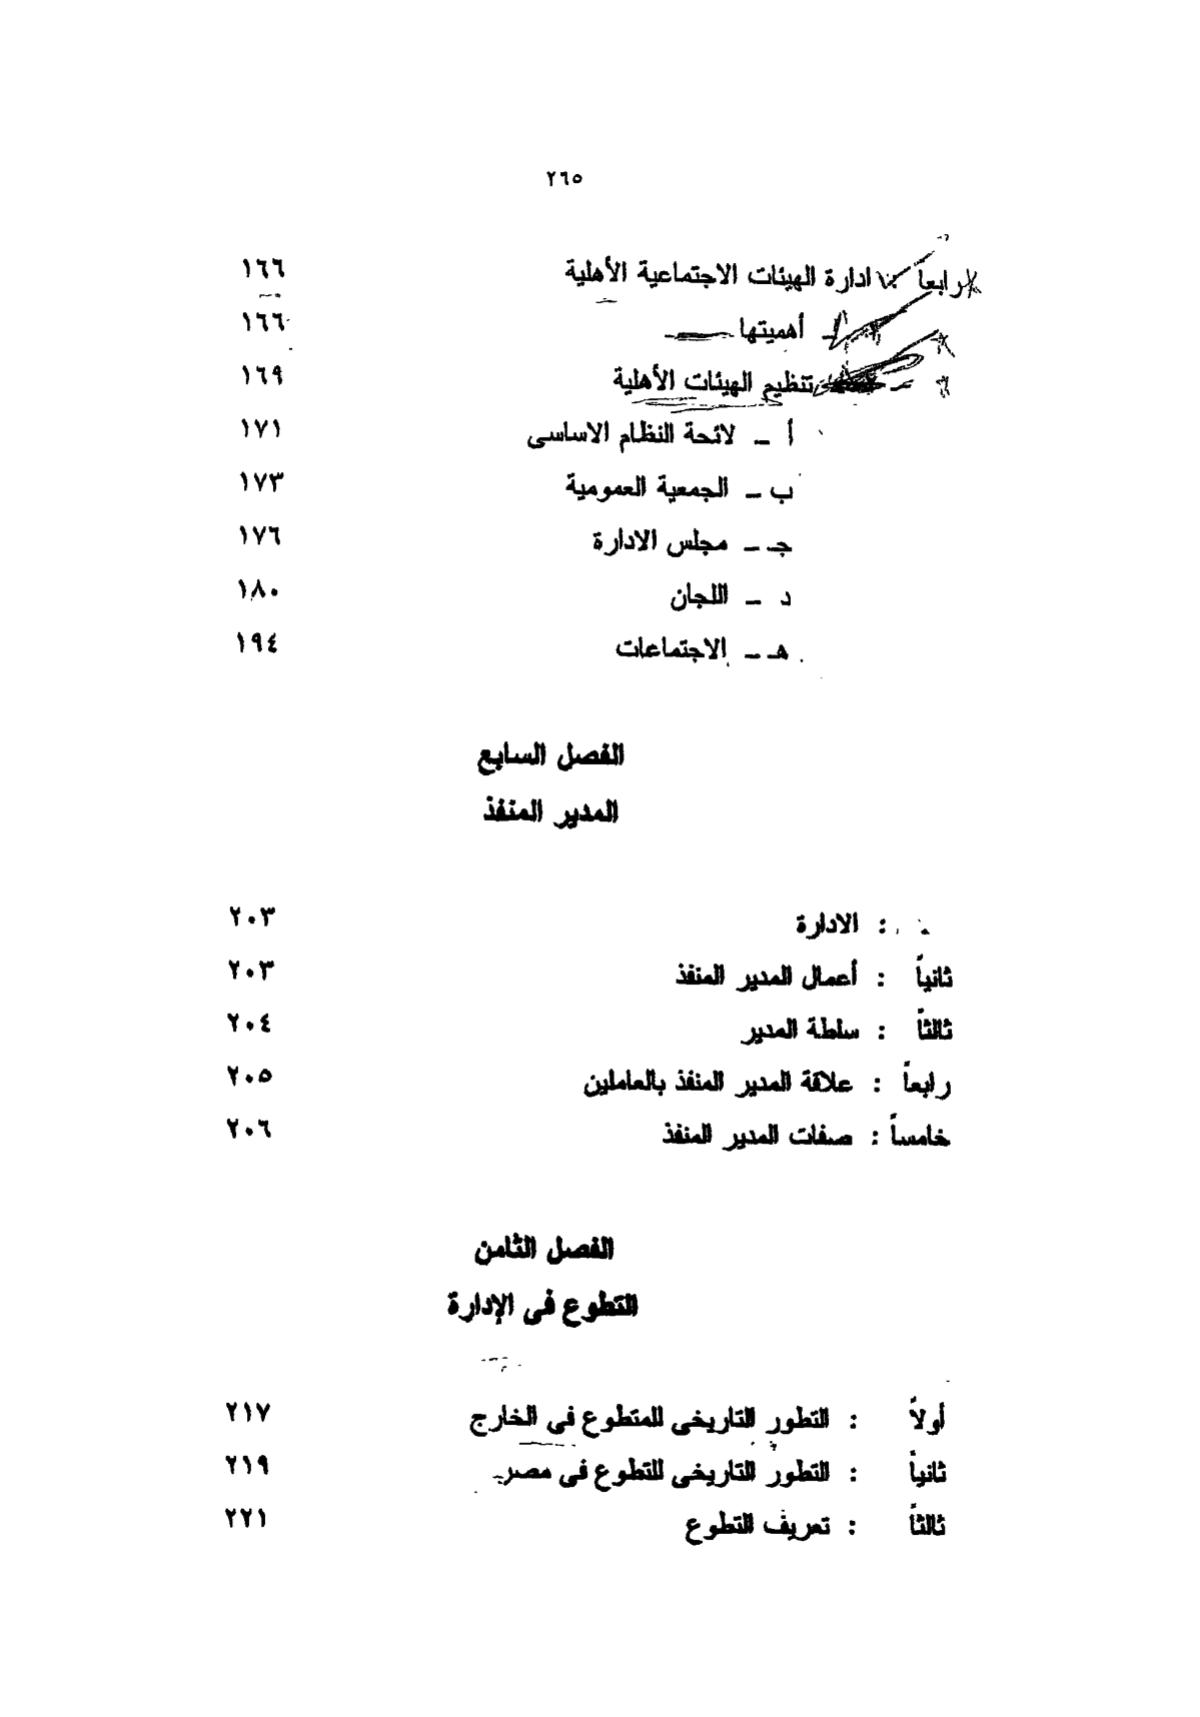 ٢٦٥
رابعاً : ادارة الهيئات الاجتماعية الأهلية ١٦٦
ـ أهميتها ١٦٦
ـ تنظيم الهيئات الأهلية ١٦٩
أ ـ لائحة النظام الاساسى ١٧١
ب ـ الجمعية العمومية ١٧٣
جـ ـ مجلس الادارة ١٧٦
د ـ اللجان ١٨٠
هـ ـ الاجتماعات ١٩٤
الفصل السابع
المدير المنفذ
: الادارة ٢٠٣
ثانياً : أعمال المدير المنفذ ٢٠٣
ثالثاً : سلطة المدير ٢٠٤
رابعاً : علاقة المدير المنفذ بالعاملين ٢٠٥
خامساً : صفات المدير المنفذ ٢٠٦
الفصل الثامن
التطوع فى الإدارة
أولاً : التطور التاريخى للمتطوع فى الخارج ٢١٧
ثانياً : التطور التاريخى للتطوع فى مصر ٢١٩
ثالثاً : تعريف التطوع ٢٢١